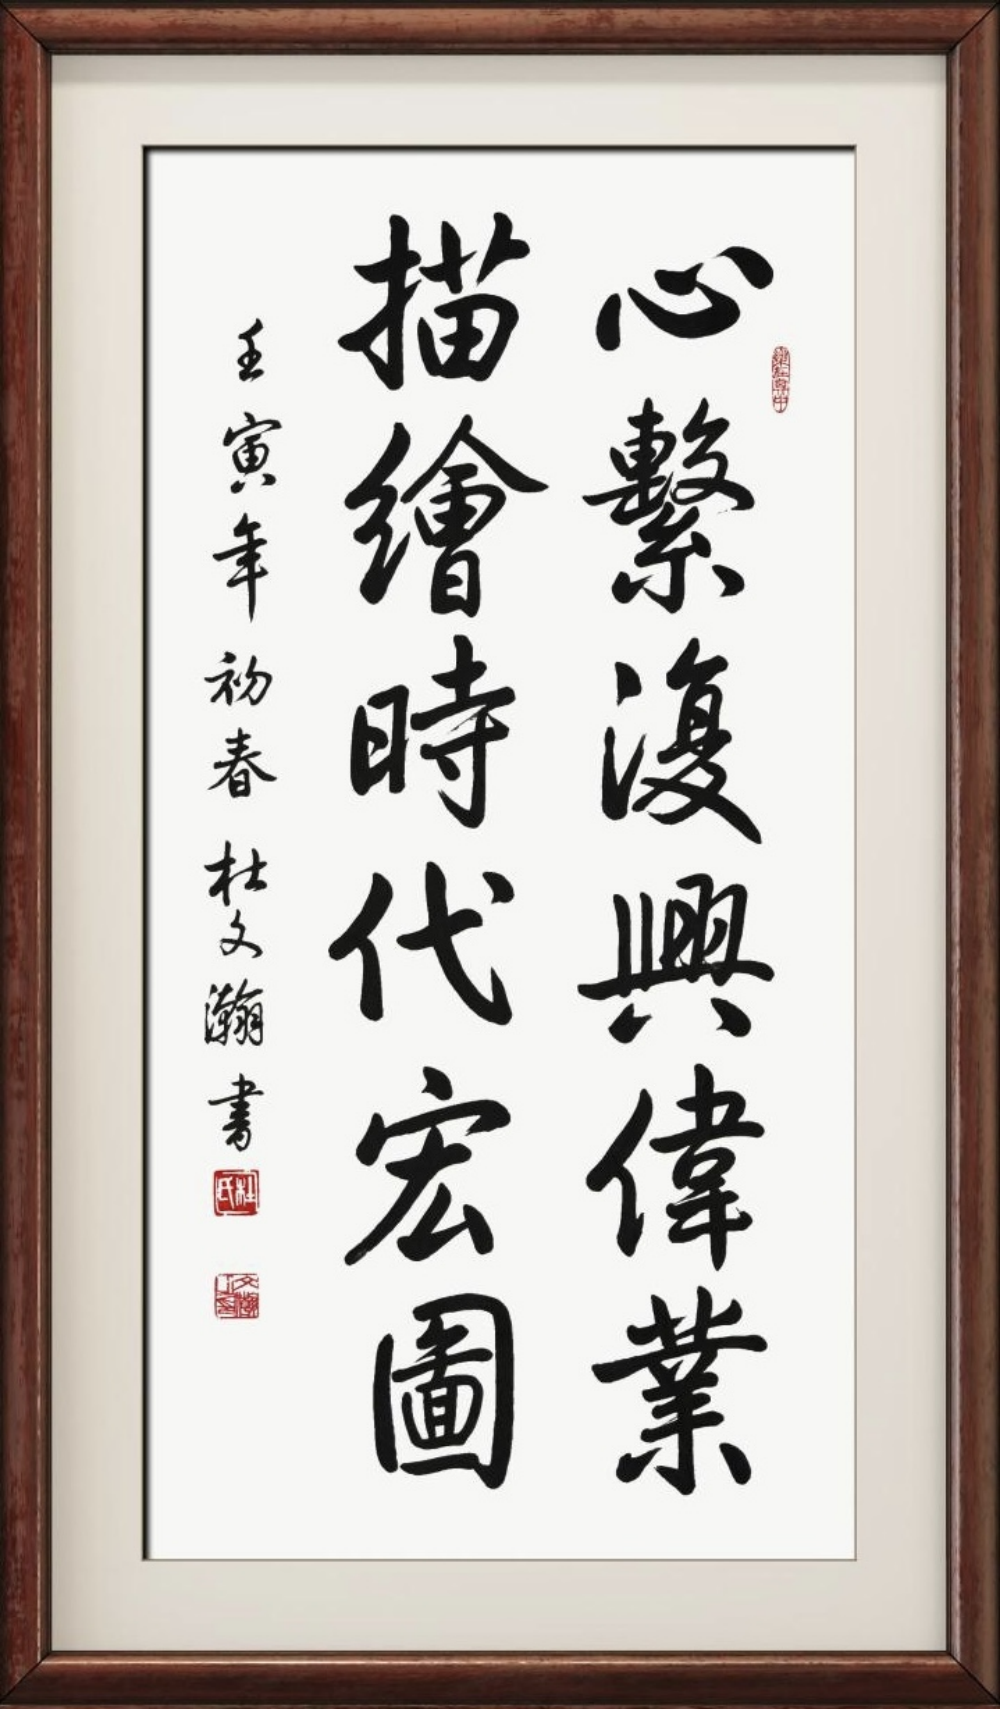 心繫復興偉業
描繪時代宏圖
壬寅年初春杜文瀚書
杜氏